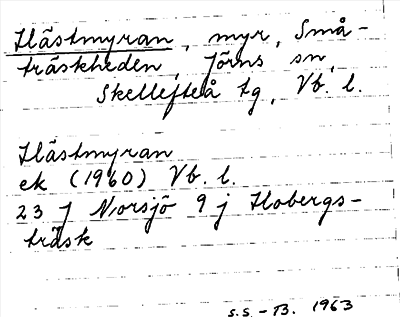 Hästmyran, myr, Små-
träskheden, Jörns sn,
Skellefteå tg, Vb. l.
Hästmyran
ek (1960) Vb. l.
23 J Norsjö 9 j Hobergs-
träsk
S.S. - B. 1963